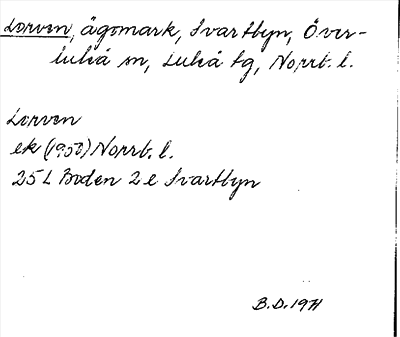 Lorven, ägomark, Svartbyn, Över-
luleå sn, Luleå tg, Norrb. l.
Lorven
ek (1950) Norrb. l.
25 L Boden 2 e Svartbyn
B.D. 1971